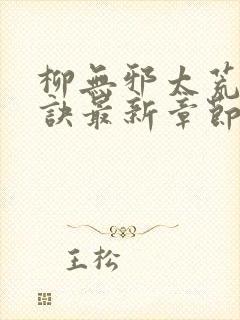 柳無邪太荒
訣最新章節
王松